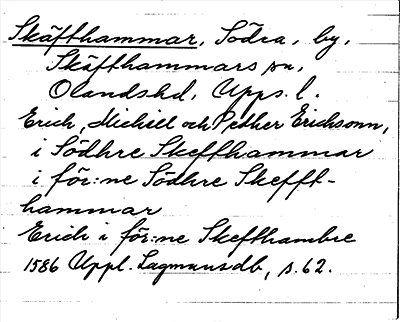 Skäfthammar, Södra, by,
Skäfthammars sn,
Olandshd, Upps. l.
Erich, Michell och Pedher Erichsonn,
i Södhre Skeffthammar
i för:ne Södhre Skefft-
hammar
Erich i för:ne Skefthambre
1586 Uppl. Lagmansdb, s. 62.